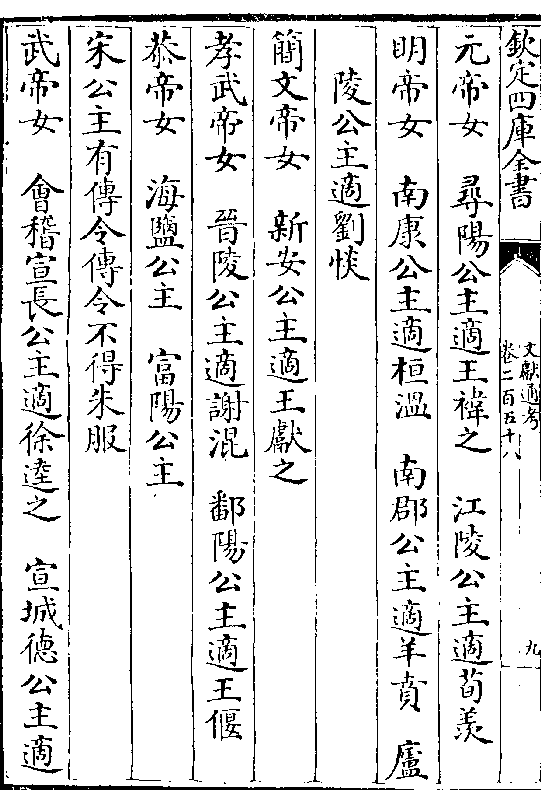 欽定四庫全書
文獻通考
卷二百五十八
九
元帝女　尋陽公主適王褘之　江陵公主適荀羨
明帝女　南康公主適桓溫　南郡公主適羊賁　廬
陵公主適劉惔
簡文帝女　新安公主適王獻之
孝武帝女　晉陵公主適謝混　鄱陽公主適王偃
恭帝女　海鹽公主　富陽公主
宋公主有傳令傳令不得朱服
武帝女　會稽宣長公主適徐逵之　宣城德公主適